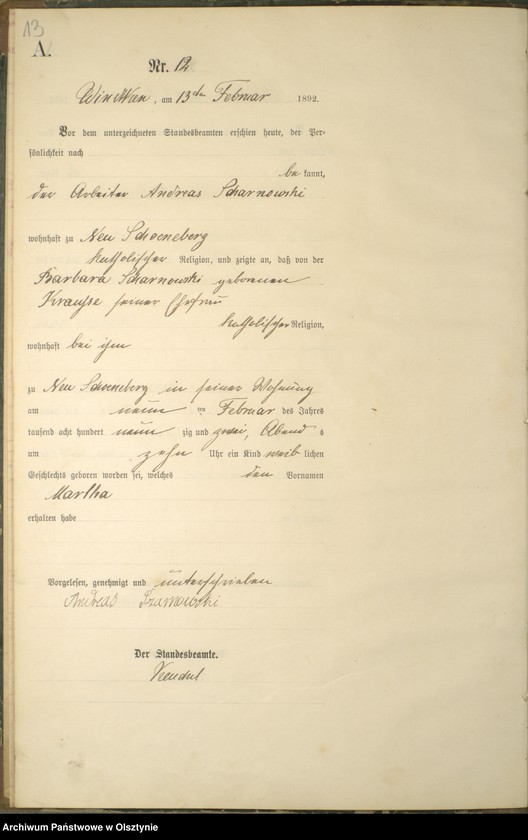 13
A.
Nr. 12
am 13ten Februar 1892.
Vor dem unterzeichneten Standesbeamten erschien heute, der Per-
sönlichkeit nach
be kannt,
der Arbeiter Andreas Scharnowski
wohnhaft zu Neu Schoeneberg
katholischer Religion, und zeigte an, daß von der
Barbara Scharnowski geborenen
Krauhse seiner Ehefrau
katholischer Religion,
wohnhaft bei ihm
zu Neu Schoeneberg in seiner Wohnung
am neun ten Februar des Jahres
tausend acht hundert neun zig und zwei, Abend s
um zehn Uhr ein Kind weib lichen
Geschlechts geboren worden sei, welches den Vornamen
Martha
erhalten habe
Vorgelesen, genehmigt und unterschrieben
Andreas Szarnowski
Der Standesbeamte.
Archiwum Państwowe w Olsztynie